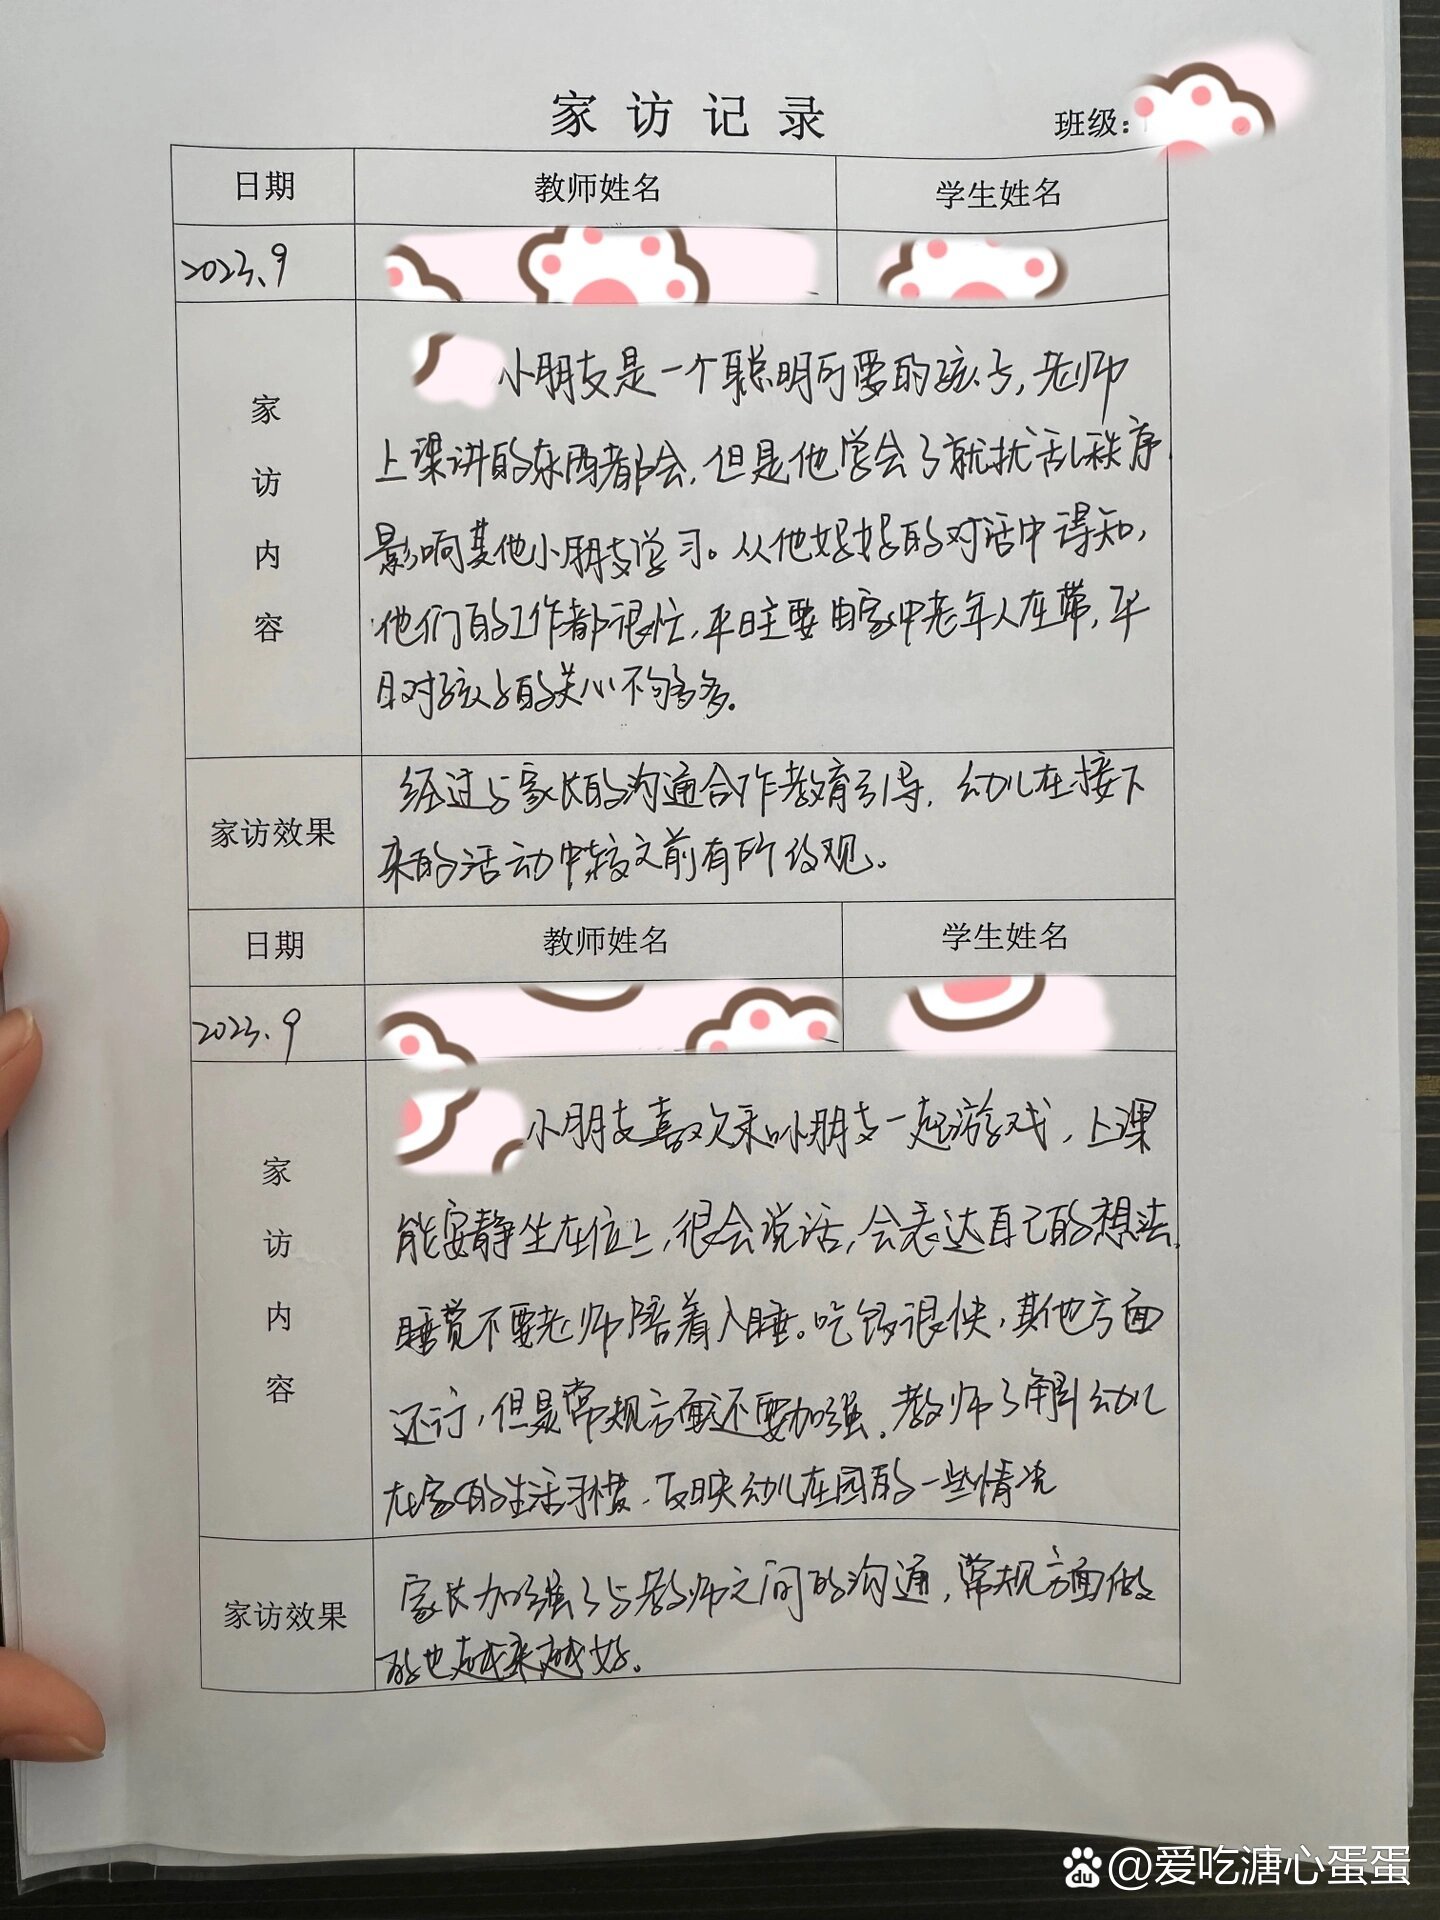 家访记录
班级：
日期 教师姓名 学生姓名
2023.9
家访内容
小朋友是一个聪明可爱的孩子，老师
上课讲的东西都会，但是他学会了就扰乱秩序
影响其他小朋友学习。从他妈妈的对话中得知，
他们的工作都很忙，平日主要由家中老年人在带，平
日对孩子的关心不够多。
家访效果
经过与家长的沟通合作教育引导，幼儿在接下
来的活动中较之前有所改观。
日期 教师姓名 学生姓名
2023.9
家访内容
小朋友喜欢和小朋友一起游戏，上课
能安静坐在位上，很会说话，会表达自己的想法，
睡觉不要老师陪着入睡。吃饭很快，其他方面
还行，但是常规方面还要加强。教师了解幼儿
在家的生活习惯，反映幼儿在园的一些情况
家访效果
家长加强了与教师之间的沟通，常规方面做
的也越来越好。
du @爱吃溏心蛋蛋